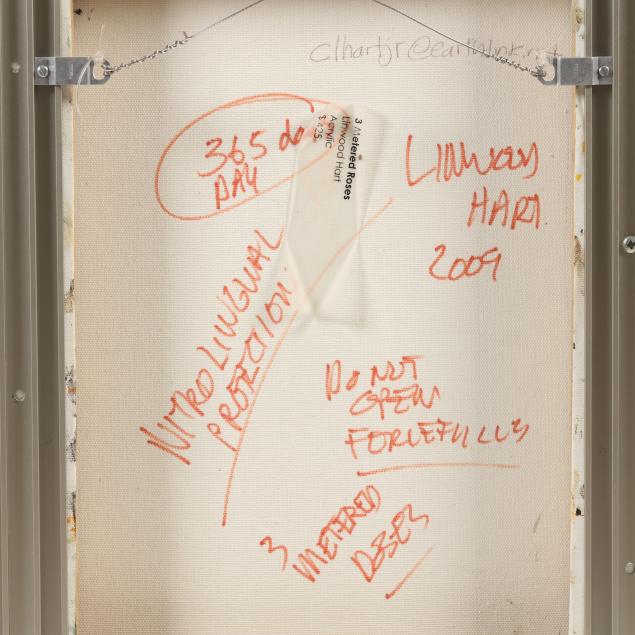 clhartjr@earthlink.net
365 da
DAY
3 Metered Roses
Linwood Hart
Acrylic
$425
LINWOOD
HART
2009
NITROLINGUAL
PROTECTION
DO NOT
OPEN
FORCEFULLY
3
METERED
DOSES